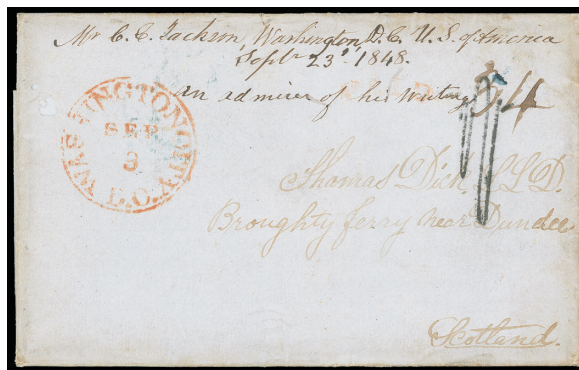 Mr C. C. Jackson, Washington, D.C. U.S. of America
Sept. 23d. 1848.
an admirer of his writings
WASHINGTON CITY D.C.
SEP
3
Thomas Dick LLD.
Broughty ferry near Dundee
Scotland.